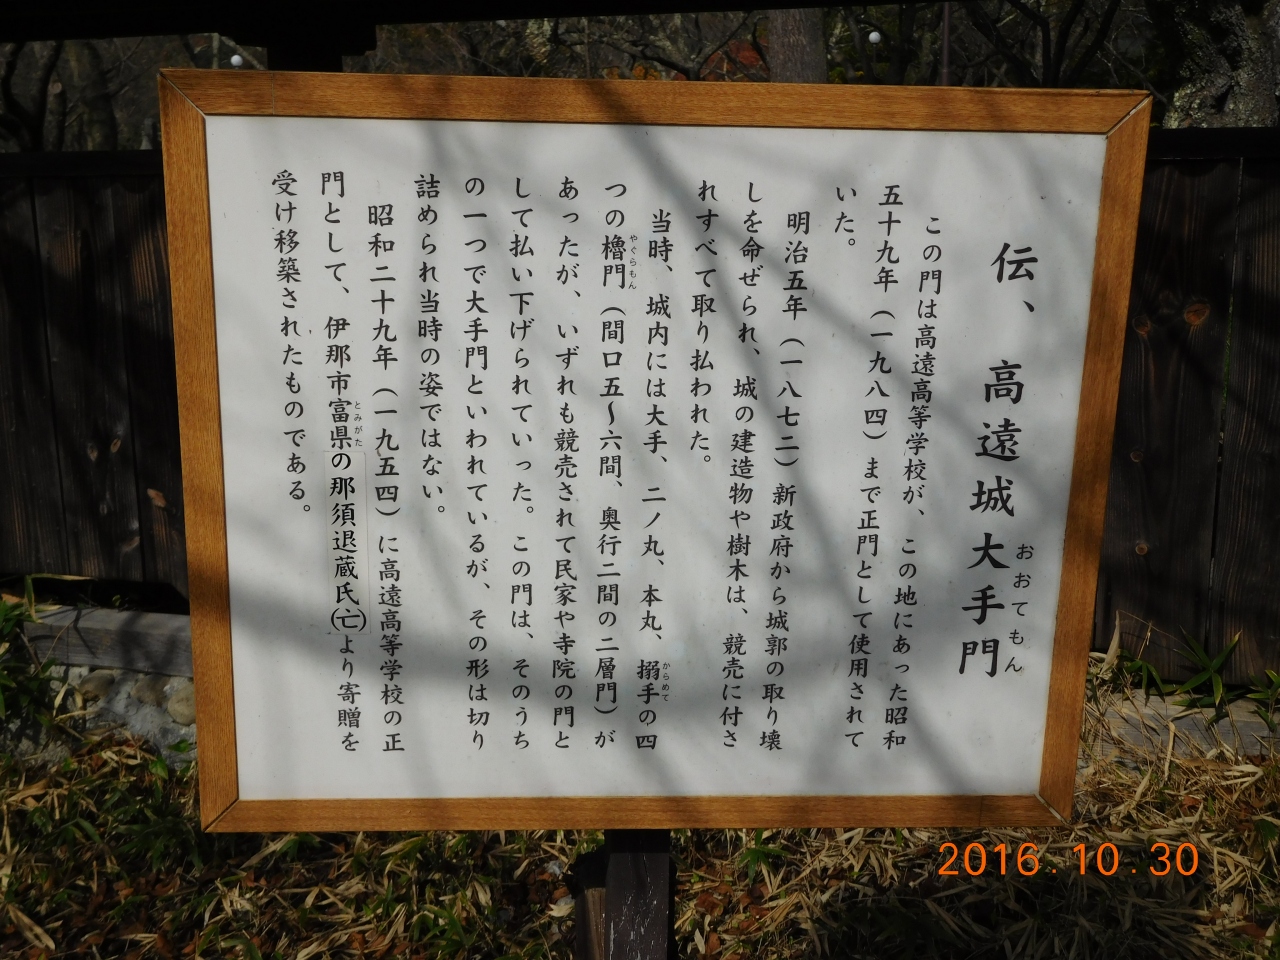 伝、高遠城大手門
おおてもん
この門は高遠高等学校が、この地にあった昭和
五十九年（一九八四）まで正門として使用されて
いた。
明治五年（一八七二）新政府から城郭の取り壊
しを命ぜられ、城の建造物や樹木は、競売に付さ
れすべて取り払われた。
当時、城内には大手、二ノ丸、本丸、搦手の四
からめて
つの櫓門（間口五～六間、奥行二間の二層門）が
やぐらもん
あったが、いずれも競売されて民家や寺院の門と
して払い下げられていった。この門は、そのうち
の一つで大手門といわれているが、その形は切り
詰められ当時の姿ではない。
昭和二十九年（一九五四）に高遠高等学校の正
門として、伊那市富県の那須退蔵氏(亡)より寄贈を
とみがた
受け移築されたものである。
2016.10.30